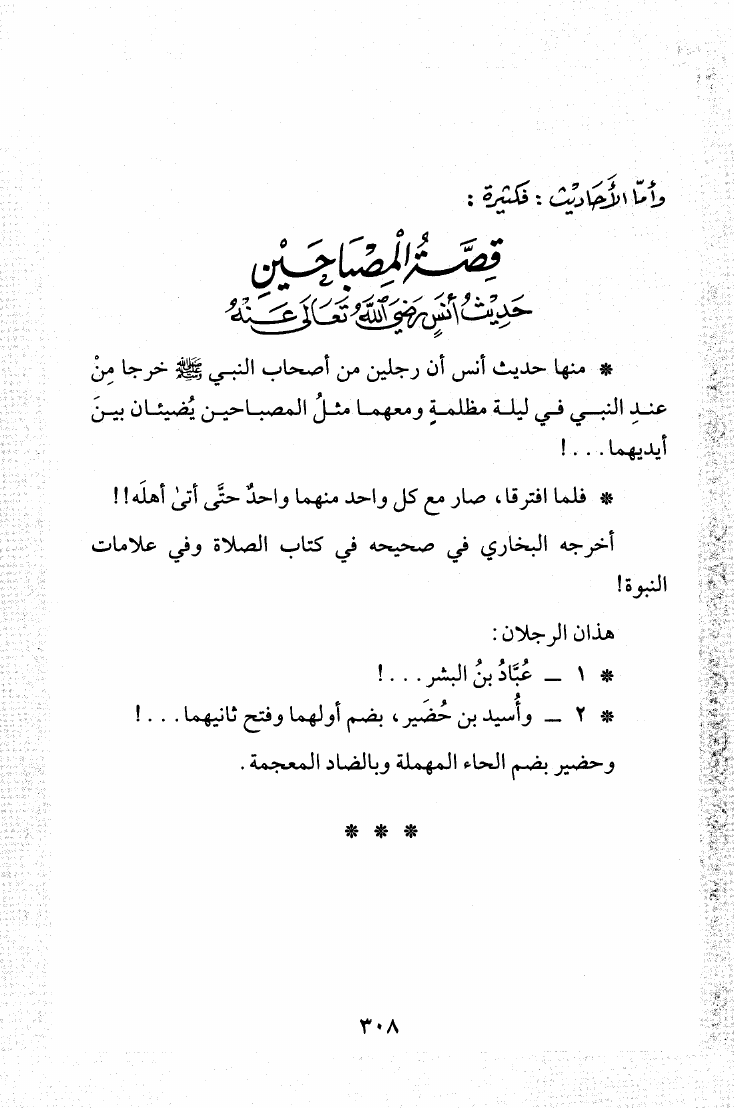 وأمّا الأَحَاديْث : فكثيرة :
قِصَّةُ المِصْبَاحَيْنِ
حَدِيْثُ أَنَسٍ رَضِيَ اللهُ تَعَالَى عَنْهُ
* منها حديث أنس أن رجلين من أصحاب النبي ﷺ خرجا مِنْ
عندِ النبي في ليلة مظلمةٍ ومعهما مثلُ المصباحين يُضيئان بينَ
أيديهما . . . !
* فلما افترقا، صار مع كل واحد منهما واحدٌ حتَّى أتىٰ أهلَه!!
أخرجه البخاري في صحيحه في كتاب الصلاة وفي علامات
النبوة!
هذان الرجلان:
* ١ ــ عُبَّادُ بنُ البشر . . . !
* ٢ ــ وأُسيد بن حُضَير، بضم أولهما وفتح ثانيهما . . . !
وحضير بضم الحاء المهملة وبالضاد المعجمة .
* * *
٣٠٨